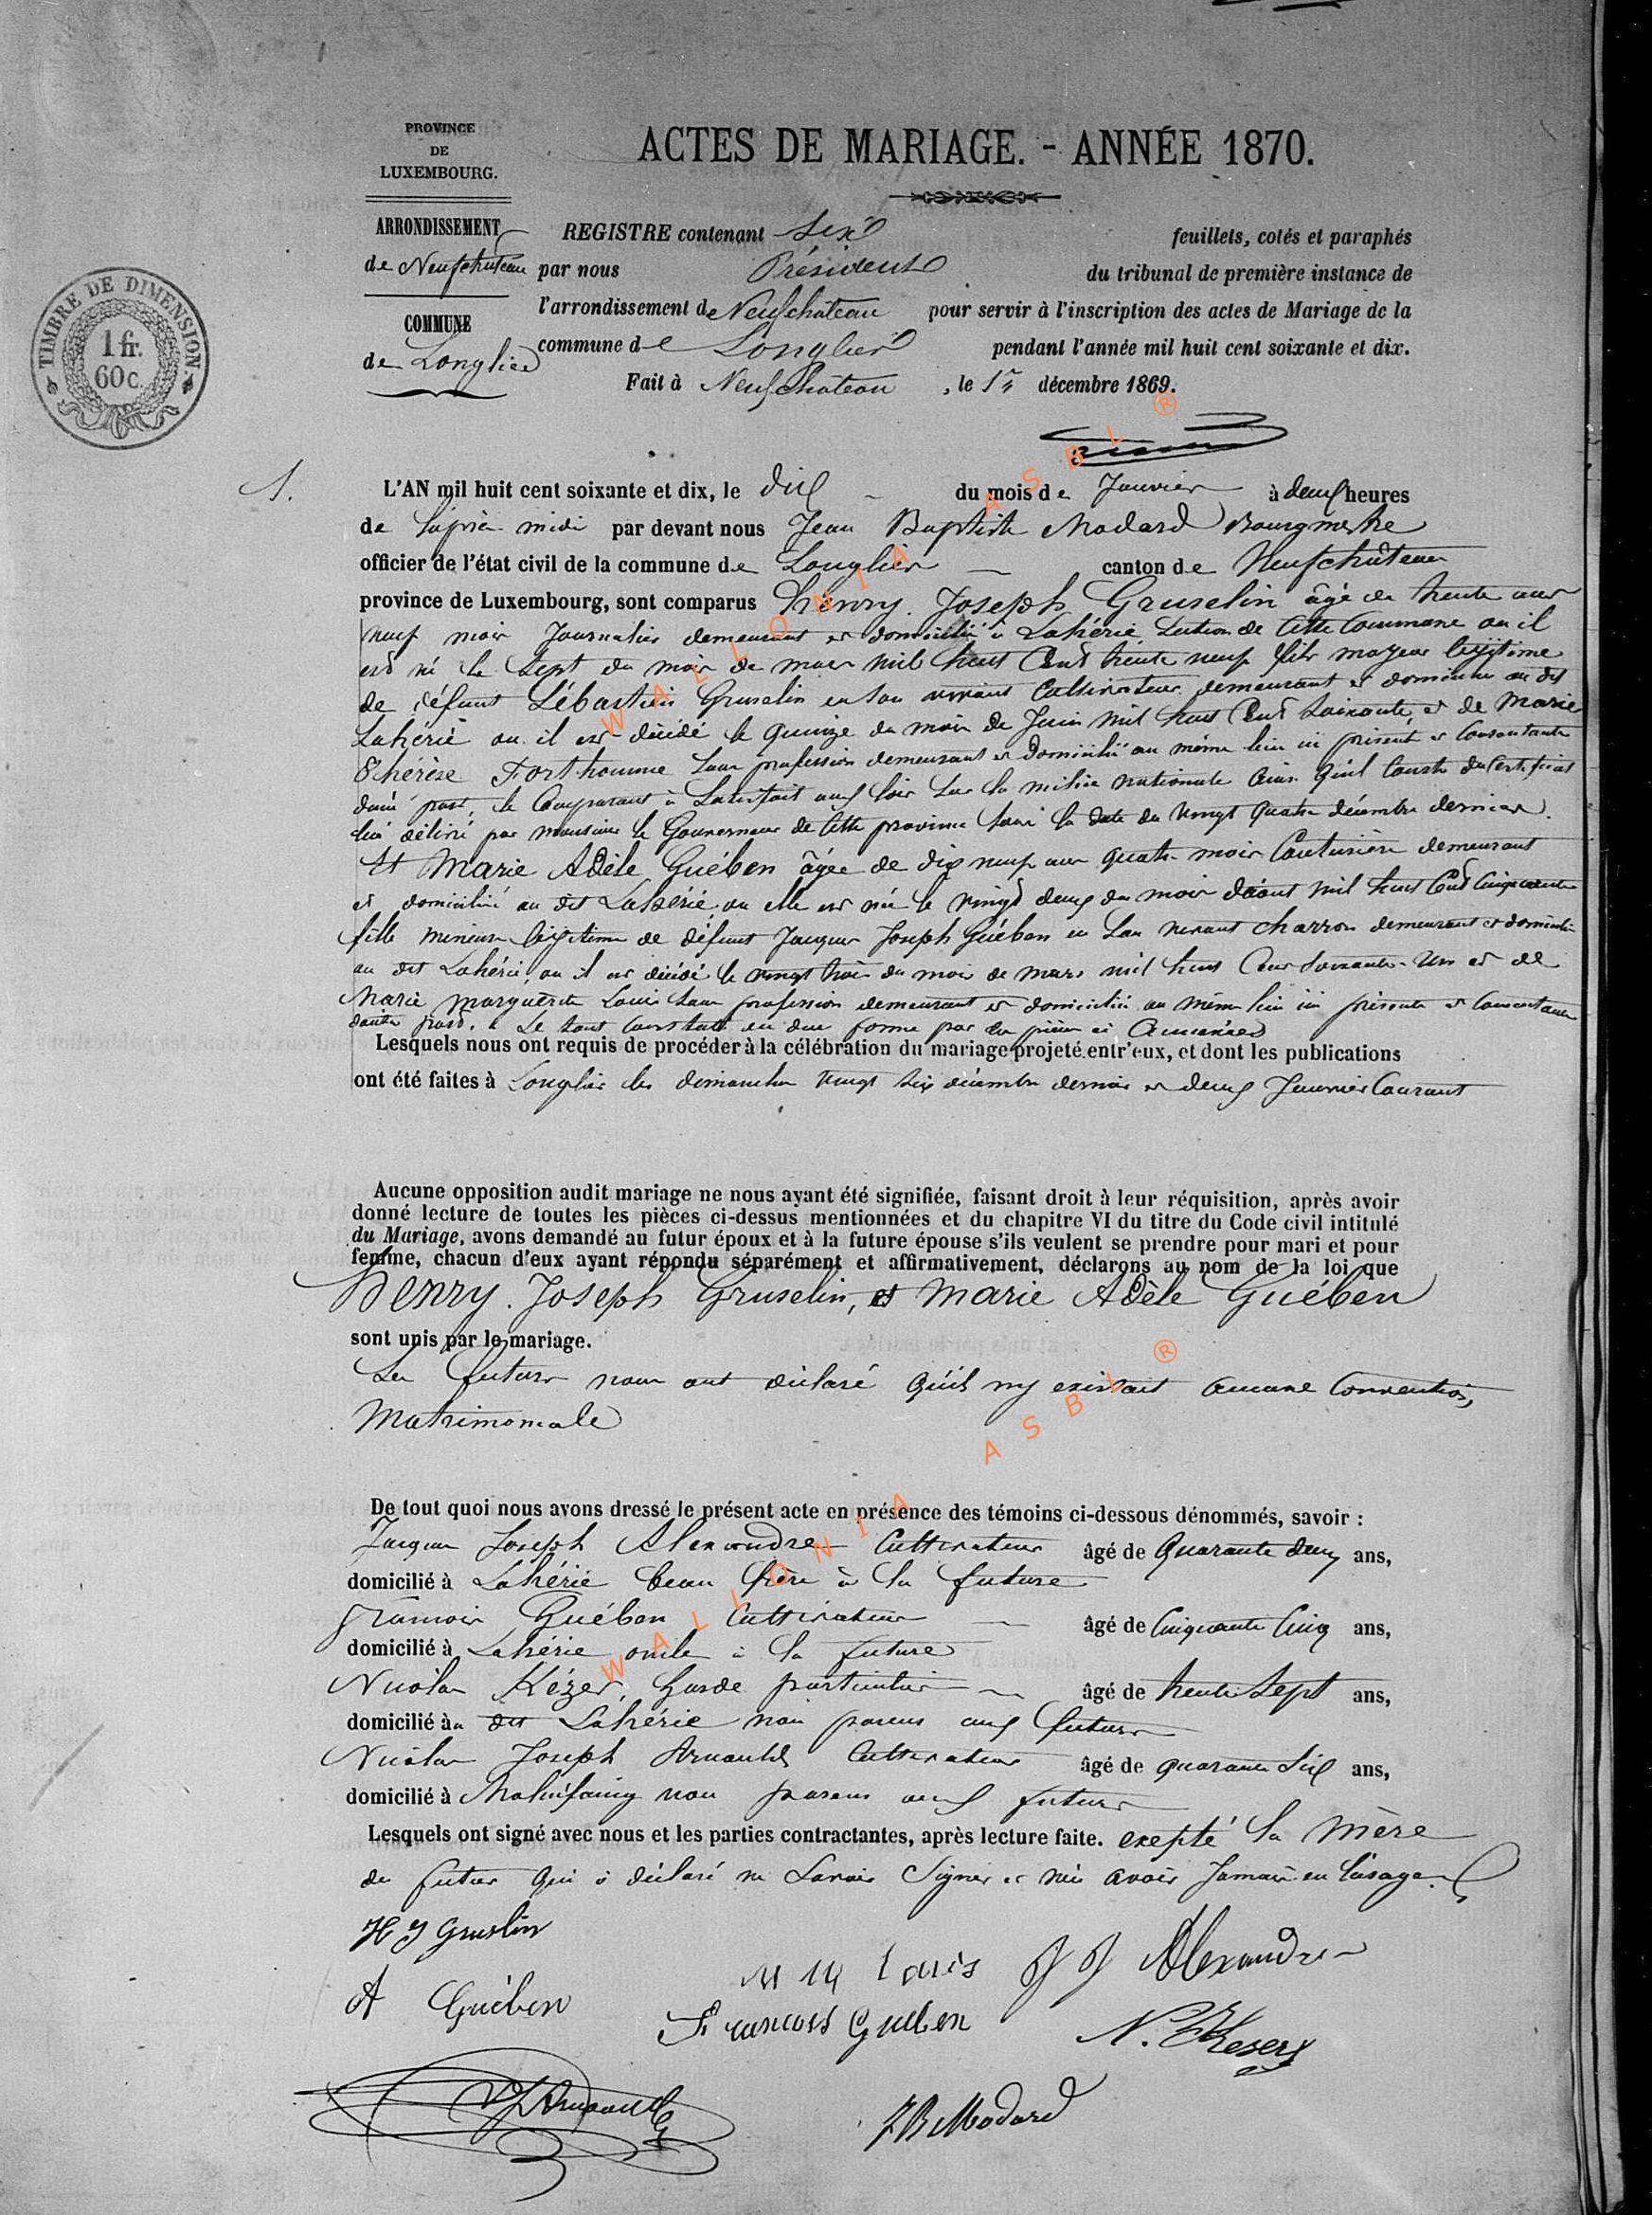 PROVINCE
DE
LUXEMBOURG.
ARRONDISSEMENT
de Neufchâteau
COMMUNE
de Longlier
TIMBRE DE DIMENSION
1 fr.
60 c.
ACTES DE MARIAGE. - ANNÉE 1870.
REGISTRE contenant six feuillets, cotés et paraphés
par nous Président du tribunal de première instance de
l'arrondissement de Neufchâteau pour servir à l'inscription des actes de Mariage de la
commune de Longlier pendant l'année mil huit cent soixante et dix.
Fait à Neufchâteau, le 1er décembre 1869.
1.
L'AN mil huit cent soixante et dix, le dix du mois de Janvier à deux heures
de l'après midi par devant nous Jean Baptiste Modard Bourgmestre
officier de l'état civil de la commune de Longlier canton de Neufchâteau
province de Luxembourg, sont comparus Henry Joseph Gruselin âgé de trente ans
neuf mois Journalier demeurant et domicilié à Lahérie Section de Cette Commune où il
est né le Sept du mois de mars mil huit Cent trente neuf fils mayeur légitime
de défunt Sébastien Gruselin en son vivant Cultivateur demeurant et domicilié au dit
Lahérie ou il est décédé le quinze du mois de Juin mil huit Cent Soixante, et de Marie
Thérèse Forthomme Sans profession demeurant et domicilié au même lieu ici présente et Consentante
d'une part, le Comparant à Satisfait aux lois Sur la milice nationale Ainsi qu'il Conste du Certificat
lui délivré par monsieur le Gouverneur de Cette province Sous la date du Vingt quatre décembre dernier.
Et Marie Adèle Guében âgée de dix neuf ans quatre mois Couturière demeurant
et domicilié au dit Lahérie ou elle est née le vingt deux du mois d'août mil huit Cent Cinquante
fille mineure légitime de défunt Jacques Joseph Guében en Son vivant charron demeurant et domicilié
au dit Lahérie ou il est décédé le vingt trois du mois de mars mil huit Cent Soixante-Un et de
Marie Marguerite Louis Sans profession demeurant et domicilié au même lieu ici présente et Consentante
d'autre part. Le tout Constaté en due forme par les pièces ci Annexées
Lesquels nous ont requis de procéder à la célébration du mariage projeté entr'eux, et dont les publications
ont été faites à Longlier les dimanches vingt Six décembre dernier et deux Janvier Courant
Aucune opposition audit mariage ne nous ayant été signifiée, faisant droit à leur réquisition, après avoir
donné lecture de toutes les pièces ci-dessus mentionnées et du chapitre VI du titre du Code civil intitulé
du Mariage, avons demandé au futur époux et à la future épouse s'ils veulent se prendre pour mari et pour
femme, chacun d'eux ayant répondu séparément et affirmativement, déclarons au nom de la loi que
Henry Joseph Gruselin, et Marie Adèle Guében
sont unis par le mariage.
Les futurs nous ont déclaré qu'il n'y existait Aucune Convention,
Matrimoniale
De tout quoi nous avons dressé le présent acte en présence des témoins ci-dessous dénommés, savoir :
Jacques Joseph Alexandre Cultivateur âgé de Quarante deux ans,
domicilié à Lahérie beau frère à la future
François Guében Cultivateur âgé de Cinquante Cinq ans,
domicilié à Lahérie oncle à la future
Nicolas Kézer, Garde particulier âgé de trente Sept ans,
domicilié au dit Lahérie non parens aux futurs
Nicolas Joseph Arnould Cultivateur âgé de quarante Six ans,
domicilié à Molinfaing non parens aux futurs
Lesquels ont signé avec nous et les parties contractantes, après lecture faite. exepté la mère
du futur Qui à déclaré ne Savoir Signer et n'en avoir Jamais eu l'usage.
H J Gruslin
A Guében
M M Louis
J J Alexandre
François Guében
N. Kezer
N J Arnould
J B Modard
WALLONIA ASBL ®
WALLONIA ASBL ®